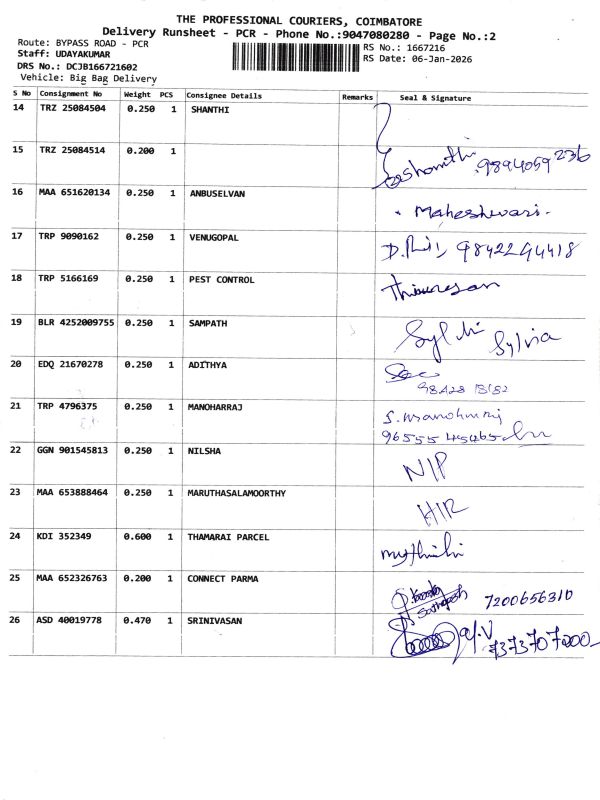 THE PROFESSIONAL COURIERS, COIMBATORE
Delivery Runsheet - PCR - Phone No.:9047080280 - Page No.:2
Route: BYPASS ROAD - PCR
Staff: UDAYAKUMAR
DRS No.: DCJB166721602
Vehicle: Big Bag Delivery
RS No.: 1667216
RS Date: 06-Jan-2026
S No Consignment No Weight PCS Consignee Details Remarks Seal & Signature
14 TRZ 25084504 0.250 1 SHANTHI
15 TRZ 25084514 0.200 1 9894059236
16 MAA 651620134 0.250 1 ANBUSELVAN Maheshwari.
17 TRP 9090162 0.250 1 VENUGOPAL 9842294418
18 TRP 5166169 0.250 1 PEST CONTROL
19 BLR 4252009755 0.250 1 SAMPATH Sylvia
20 EDQ 21670278 0.250 1 ADITHYA
21 TRP 4796375 0.250 1 MANOHARRAJ S. Manohar
96555 45465
22 GGN 901545813 0.250 1 NILSHA NIP
23 MAA 653888464 0.250 1 MARUTHASALAMOORTHY HIR
24 KDI 352349 0.600 1 THAMARAI PARCEL mythili
25 MAA 652326763 0.200 1 CONNECT PARMA 7200656310
26 ASD 40019778 0.470 1 SRINIVASAN 7373707000